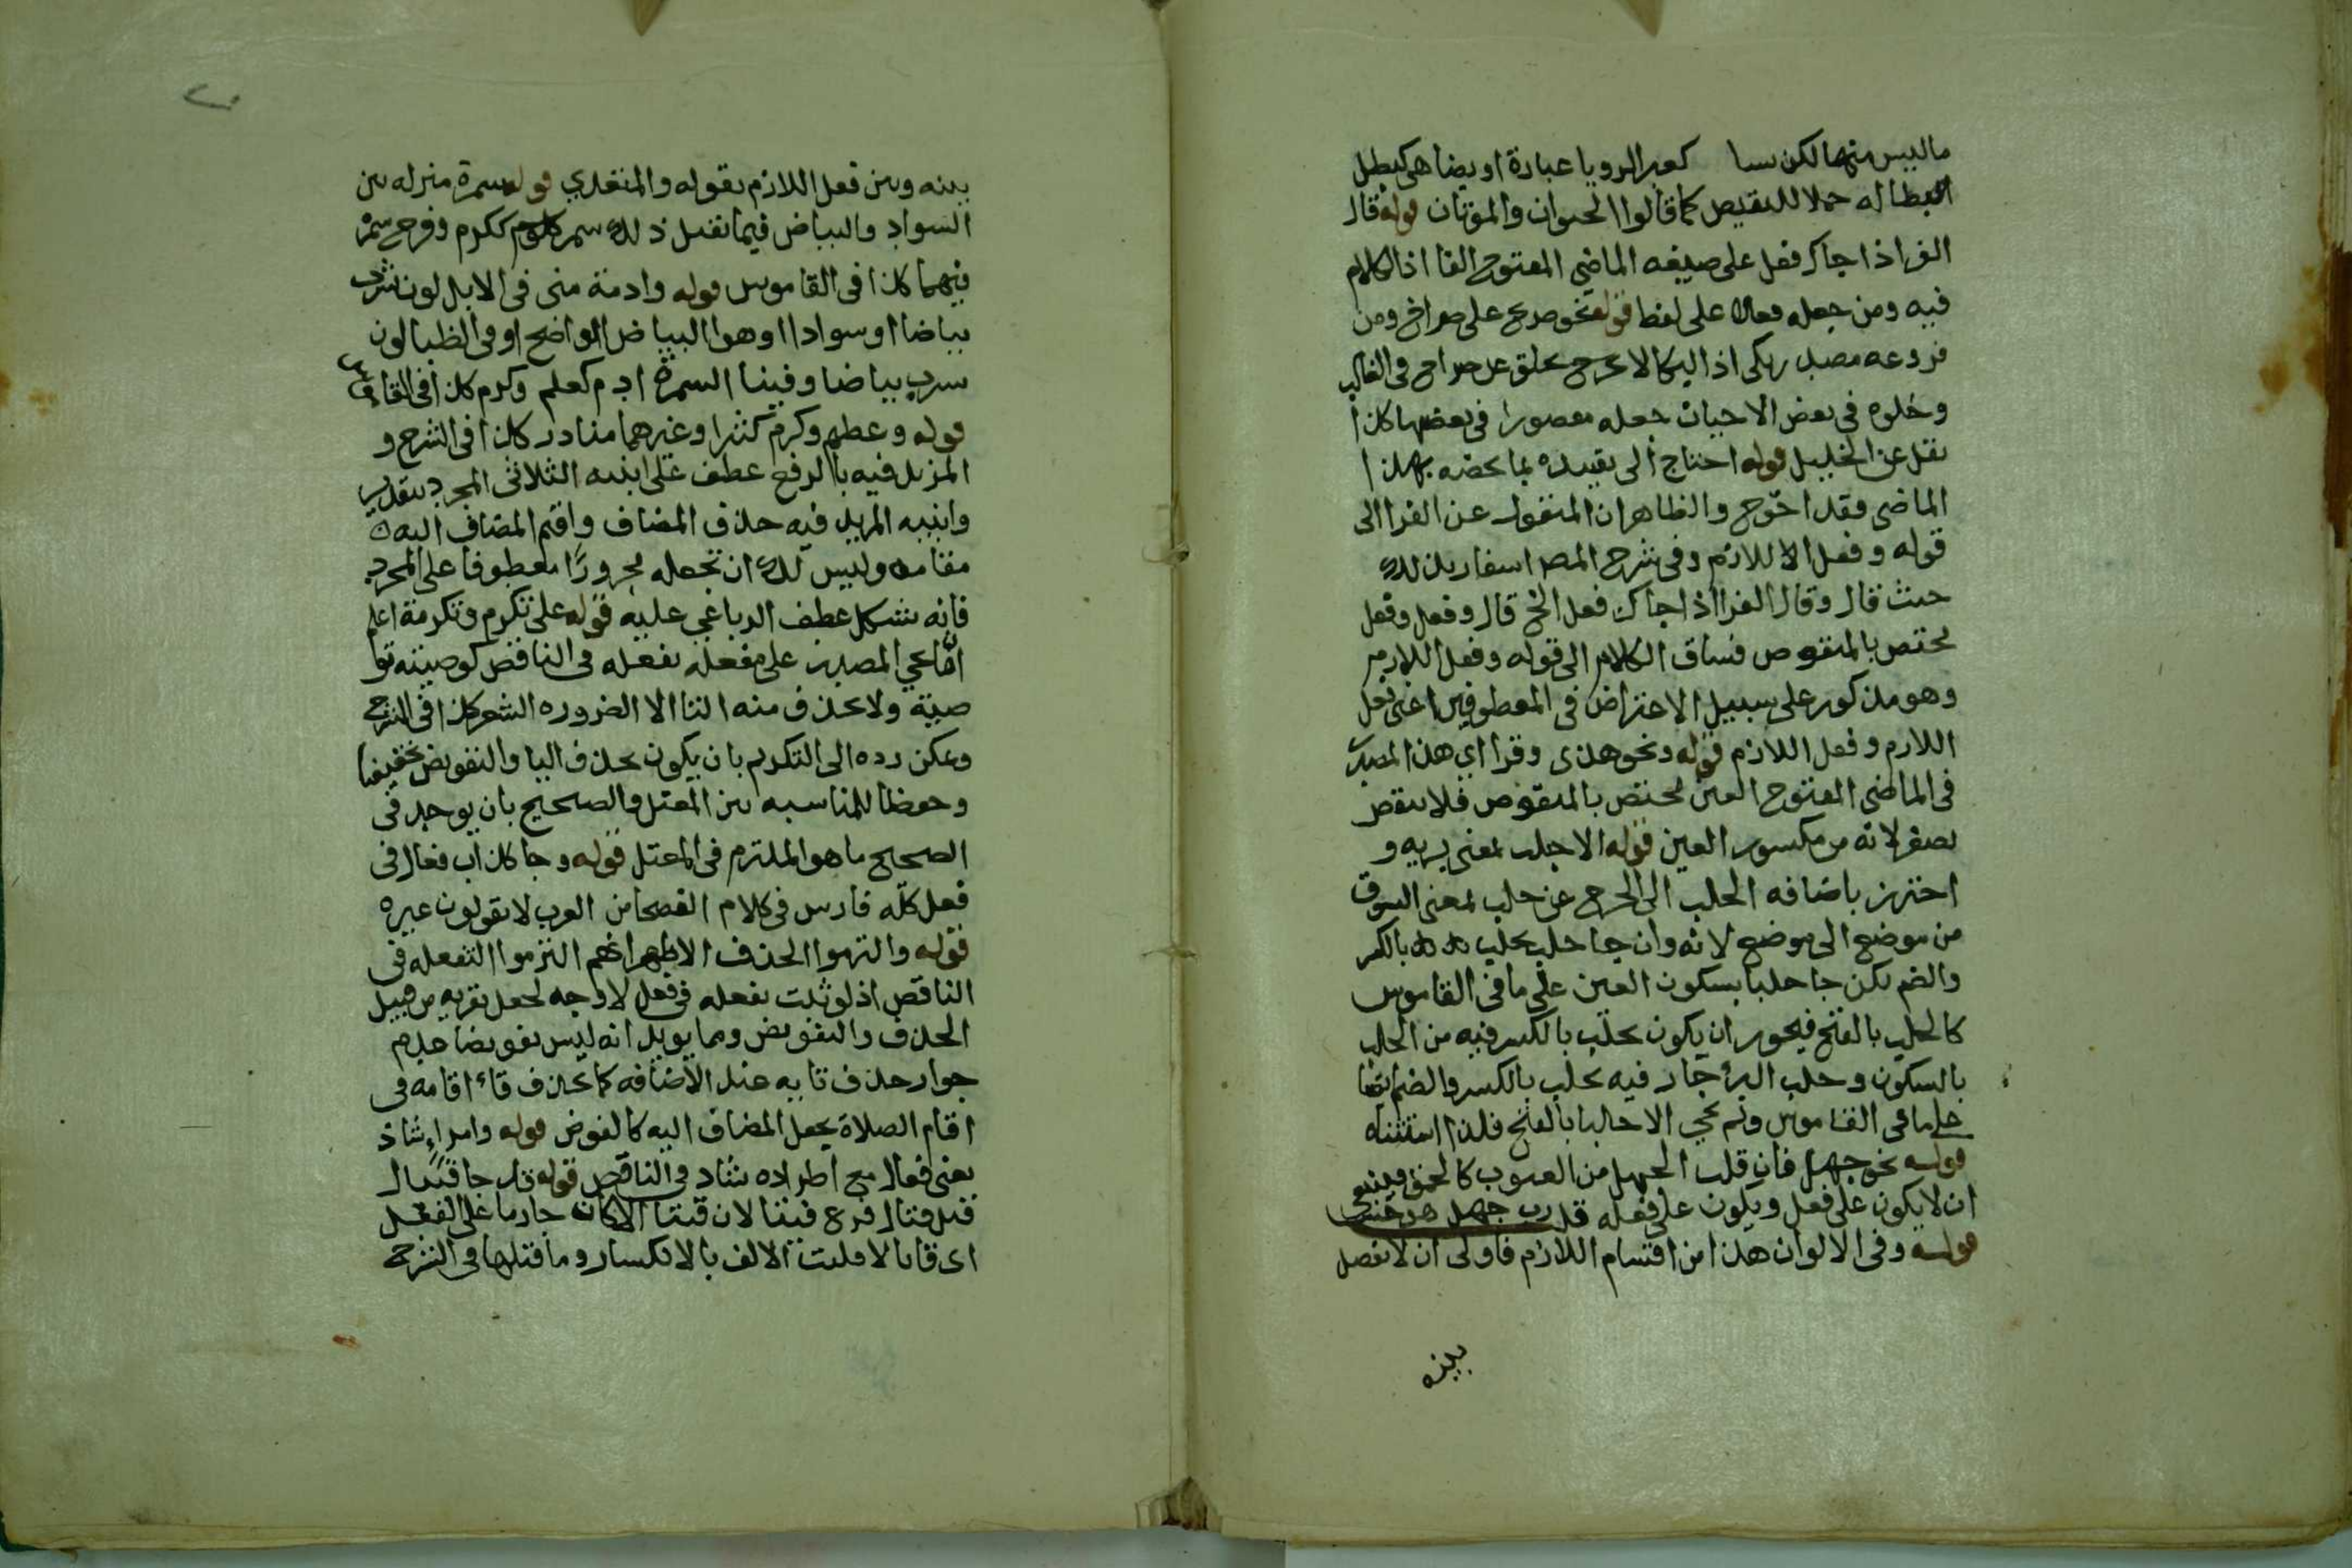 ما ليس منها لكن سا كعبر الرويا عبارة او يضاهى كبطل
البطاله حملا للنقيض كما قالوا الحيوان والموتان قوله قال
الفرا اذا جاك فعل على صيغه الماضي المفتوح الفا اذ الكلام
فيه ومن جعله فعلا على لفظ قوله نحو صرح على صراخ ومن
فروعه مصدر بكى اذ البكا لا يخرج يخلو عن صراخ فى الغالب
وخلوه فى بعض الاحيان جعله مقصورا فى بعضها كذا
نقل عن الخليل قوله احتاج الى تقييده بما يخصه بهذا
الماضى فقد احوج والظاهر ان المنقول عن الفرا الى
قوله وفعل اللازم وفى شرح المصر اسفار بذلك
حيث قال وقال الفرا اذا جاك فعل الخ قال وفعل وفعل
يختص بالمنقوص فساق الكلام الى قوله وفعل اللازم
وهو مذكور على سبيل الاعتراض فى المعطوفين اعنى فعل
اللازم وفعل اللازم قوله ونحو هدى وقرا اي هذا المصدر
فى الماضى المفتوح العين يختص بالمنقوص فلا ينقض
بصغر لانه من مكسور العين قوله الا جلب بمعنى يريه و
احترز باضافه الجلب الى الجرح عن جلب بمعنى السوق
من موضع الى موضع لانه وان جا جلب يجلب بالكسر
والضم لكن جا جلبا بسكون العين على ما فى القاموس
كالجلب بالفتح فيجوز ان يكون يجلب بالكسر فيه من الجلب
بالسكون وجلب البرؤ جاز فيه يجلب بالكسر والضم ايضا
على ما فى القاموس ولم يجي الا جالبا بالفتح فلذا استثناه
قوله نحو جهل فان قلت الجهل من العيوب كالحمق فينبغى
ان لا يكون على فعل ويكون على فعله قلت رب جهل
قوله وفى الالوان هذا من اقسام اللازم فاولى ان لا يفصل
بينه
بينه وبين فعل اللازم بقوله والمتعدي قوله سمرة منزله بين
السواد والبياض فيما نقبل ذلك سمر ككرم وفرح سمر
فيهما كذا فى القاموس قوله وادمة منى فى الابل لون شرب
بياضا او سوادا او هو البياض الواضح او فى الظبا لون
سرب بياضا وفينا السمرة ادم كعلم وكرم كذا فى القاموس
قوله وعظم وكرم كثيرا وغيرهما منادر كذا فى الشرح و
المزيد فيه بالرفع عطف على ابنيه الثلاثى المجرد بتقدير
وابنيه المزيد فيه حذف المضاف واقيم المضاف اليه
مقامه وليس لك ان تجعله مجرورا معطوفا على المجرد
فانه يشكل عطف الرباعي عليه قوله على تكرم وتكرمة اعلم
انما يجي المصدر على تفعله فى الناقص كوصيته تو
صية ولا يحذف منه التا الا لضروره الشعر كذا فى الشرح
ويمكن رده الى التكريم بان يكون بحذف اليا والتعويض تخفيفا
وحفظا للمناسبه بين المعتل والصحيح بان يوجد فى
الصحيح ما هو الملتزم فى المعتل قوله وجا كذاب فعال فى
فعل كله فارس فى كلام الفصحا من العرب لا يقولون غيره
قوله والتزموا الحذف الاظهر انهم التزموا التفعله فى
الناقص اذ لو ثبت تفعله فى فعل لا وجه لجعل تعزيه من قبيل
الحذف والتعويض ومما يويد انه ليس تعويضا عدم
جواز حذف تايه عند الاضافه كما يحذف تاء اقامه فى
اقام الصلاة بجعل المضاف اليه كالعوض قوله وامراء شاذ
يعنى فعال مع اطراده شاذ فى الناقص قوله قد جا قيتال
قبل قتال فرع قيتال لان قيتا الا كان جاريا على الفعل
اى قاتل الا قلبت الالف يا لانكسار وما قبلها فى الشرح